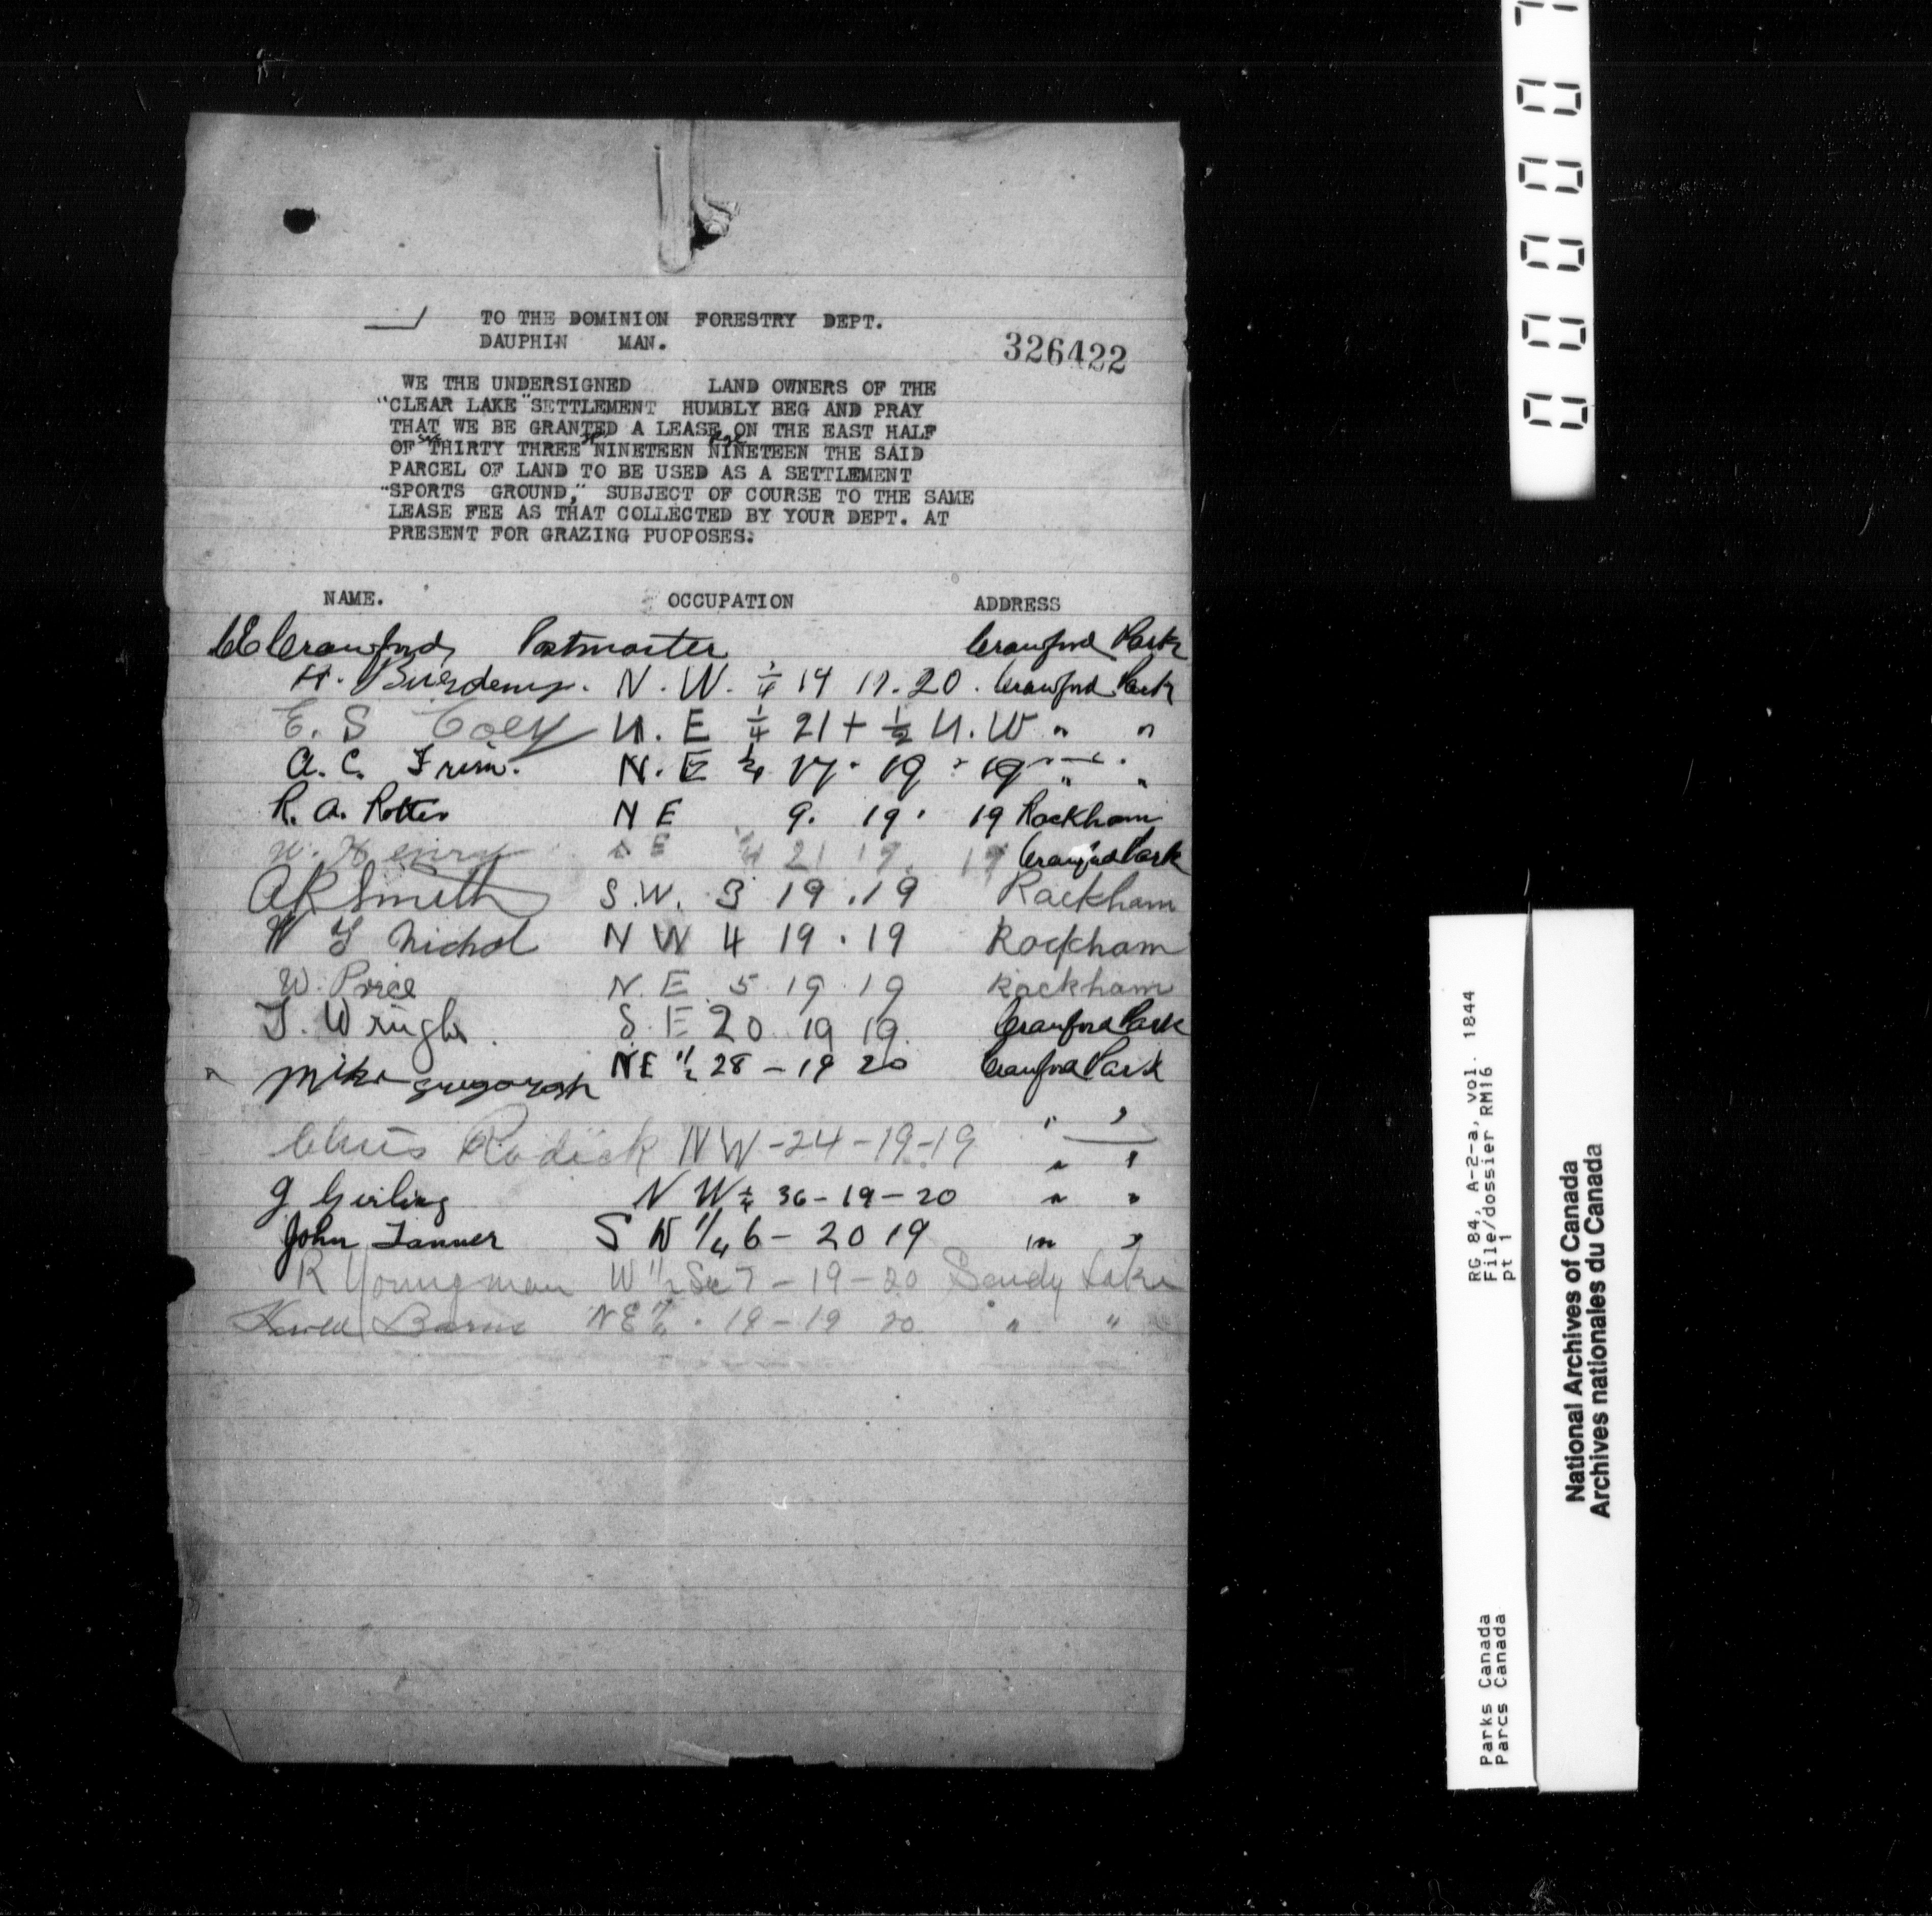 TO THE DOMINION FORESTRY DEPT.
DAUPHIN MAN.
326422
WE THE UNDERSIGNED LAND OWNERS OF THE
"CLEAR LAKE" SETTLEMENT HUMBLY BEG AND PRAY
THAT WE BE GRANTED A LEASE ON THE EAST HALF
OF THIRTY THREE NINETEEN NINETEEN THE SAID
PARCEL OF LAND TO BE USED AS A SETTLEMENT
"SPORTS GROUND," SUBJECT OF COURSE TO THE SAME
LEASE FEE AS THAT COLLECTED BY YOUR DEPT. AT
PRESENT FOR GRAZING PUOPOSES.
NAME. OCCUPATION ADDRESS
Crawford Postmaster Crawford Park
H. N.W. 1/4 14 19.20. Crawford Park
E. S Coey N.E 1/4 21 + 1/2 N.W " "
A. C. N.E 1/4 17 . 19 . 19 " "
R. A. Potter N E 9. 19. 19 Rackham
W. Henry E 1/4 21 19. 19 Crawford Park
A R Smith S.W. 3 19 .19 Rackham
W Nichol N W 4 19 . 19 Rackham
W. Price N. E. 5 19 19 Rackham
T. Wright S. E 20 19 19. Crawford Park
Mike NE 28 - 19 20 Crawford Park
" "
Chris Rodick NW - 24 - 19 - 19 " "
J Girling N W 1/4 36 - 19 - 20 " "
John Tanner S W 1/4 6 - 20 19 " "
R Youngman W 1/2 Sec 7 - 19 - 20 Sandy Lake
NE 1/4 . 19 - 19 20. " "
RG 84, A-2-a, vol. 1844
File/dossier RM16
pt 1
Parks Canada
Parcs Canada
National Archives of Canada
Archives nationales du Canada